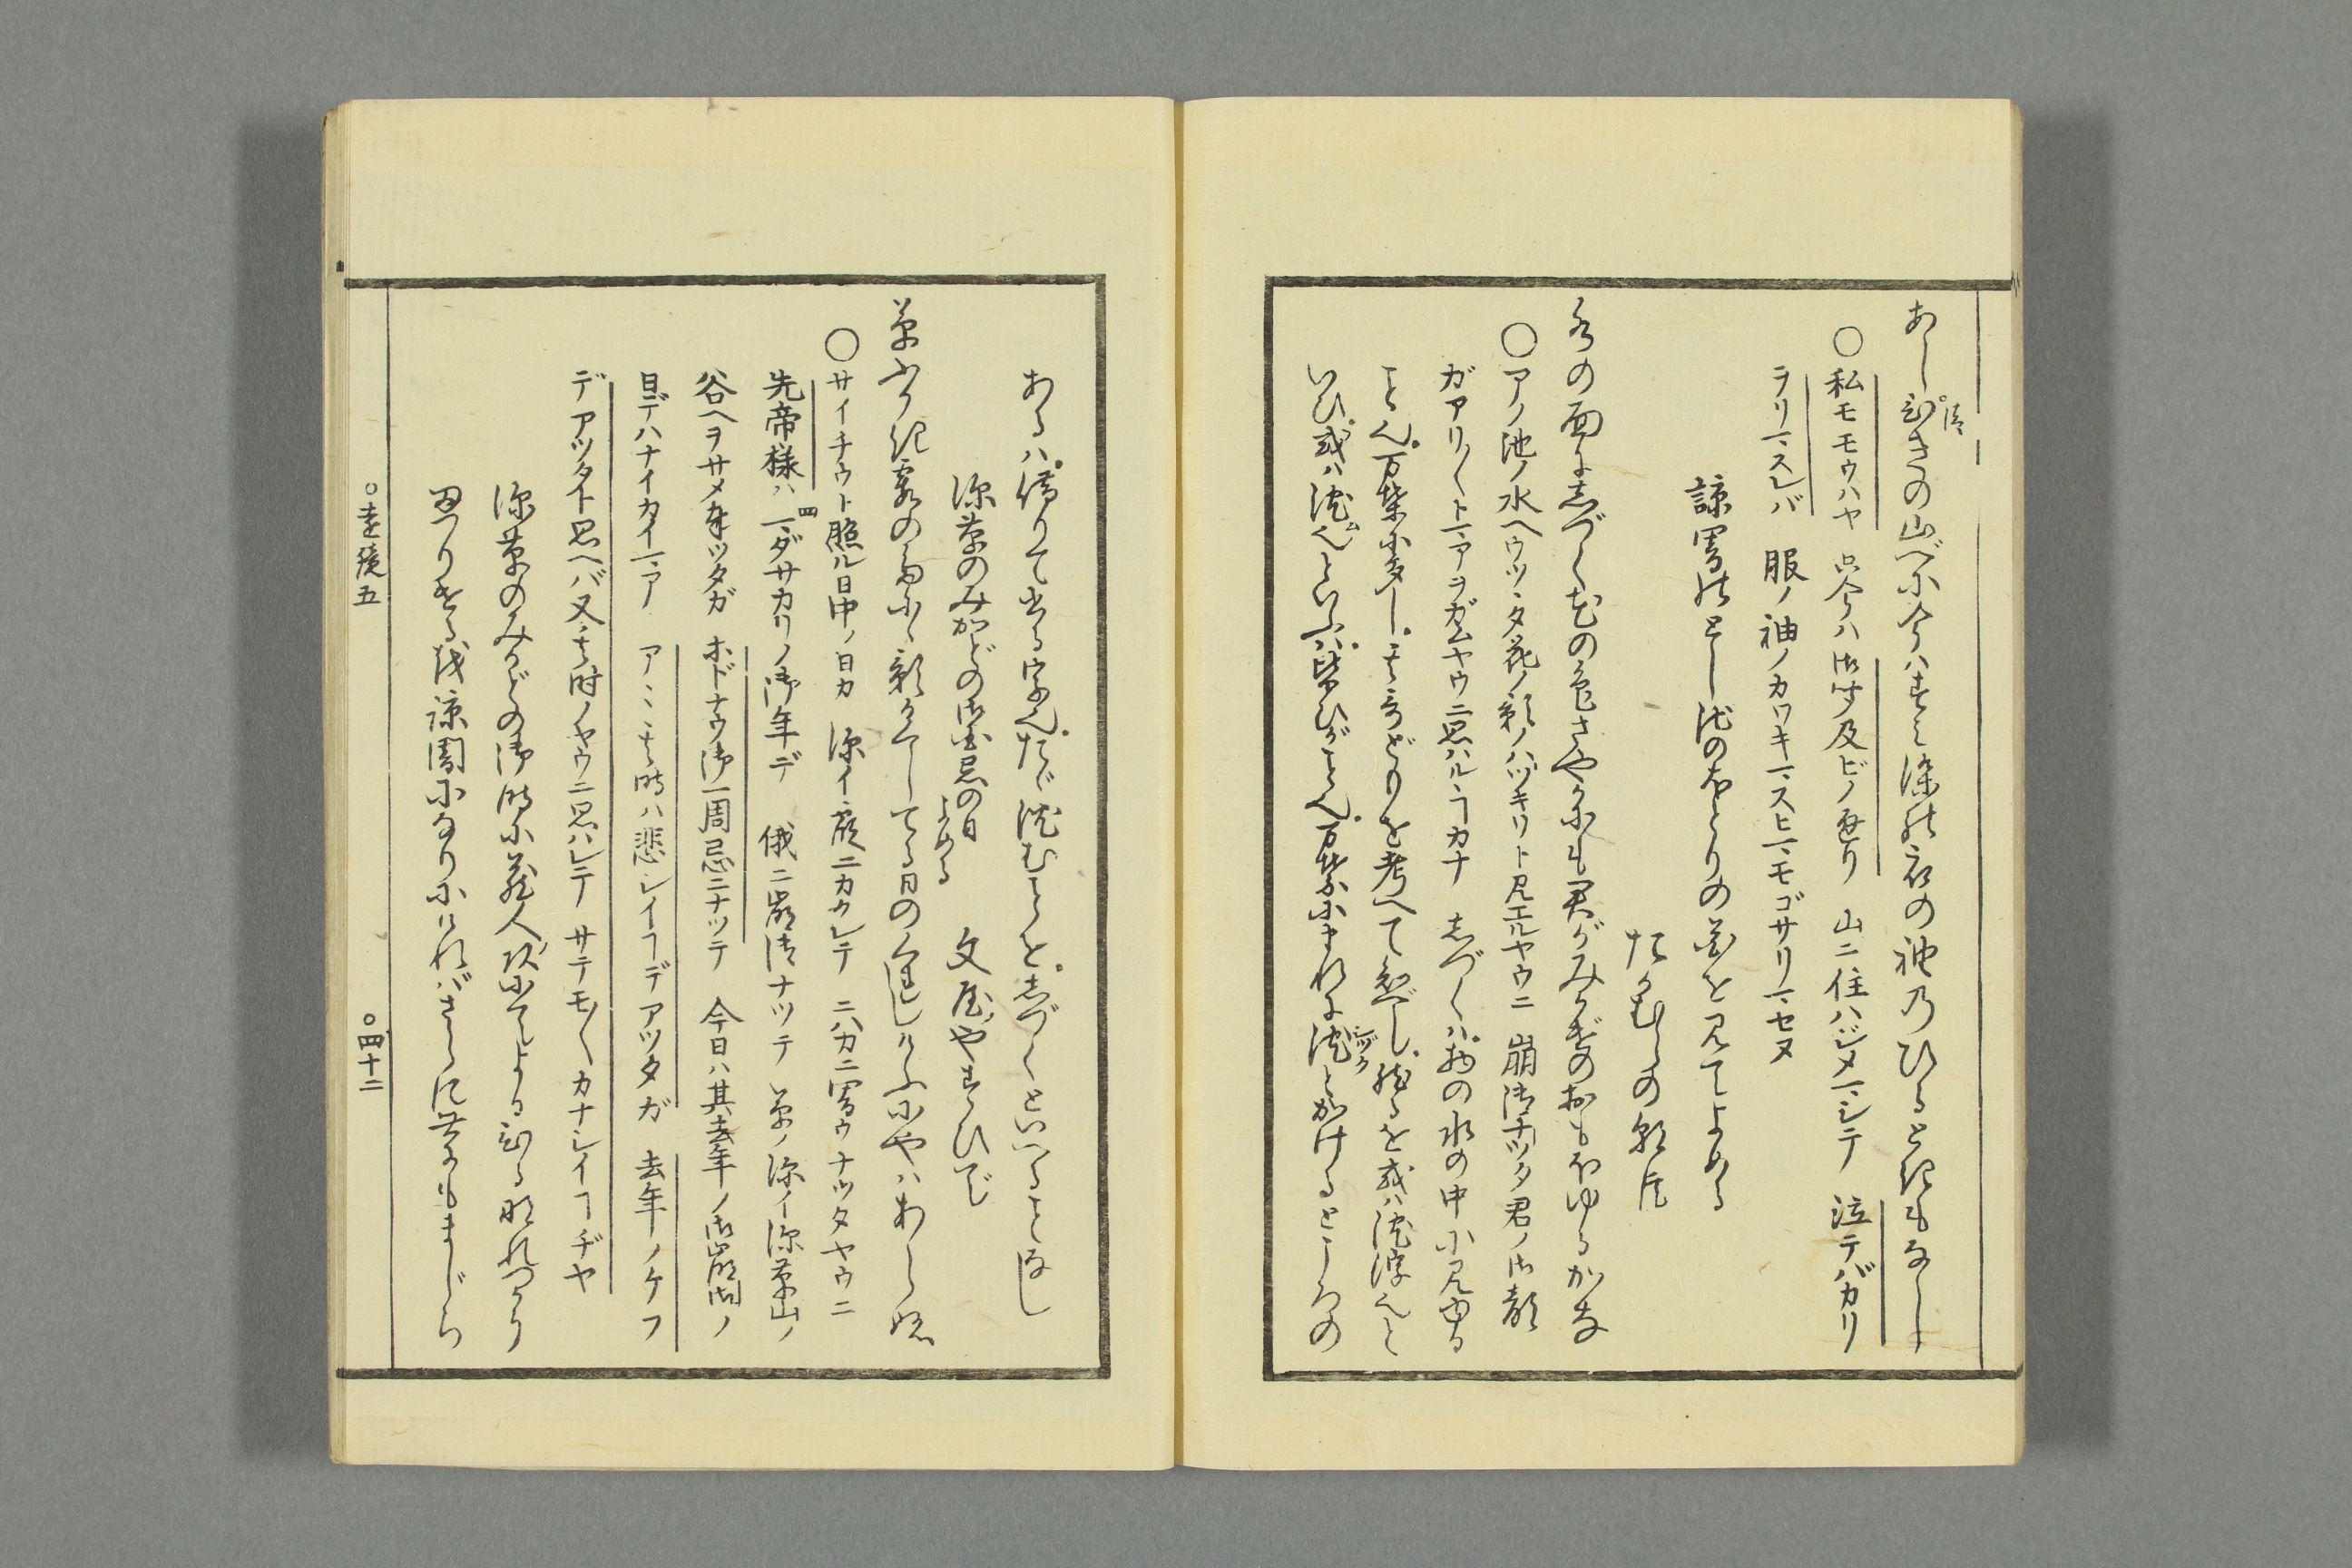 あしひきの山べに今はすみ染の衣の袖のひるときもなし
○私モモウハヤ 只今ハ御聞及ビノ通リ 山ニ住ハジメマシテ 泣テバカリ
ヲリマスレバ 服ノ袖ノカワキマスヒマモゴサリマセヌ
諒闇のとし池のほとりの花を見てよめる
たかむらの朝臣
水の面にしづく花の色さやかにも君がみかげのおもほゆるかな
○アノ池ノ水ヘウツヽタ花ノ影ノハツキリト見エルヤウニ 崩御ナツタ君ノ御顔
ガアリ〳〵トマアヲガムヤウニ思ハルヽヿカナ しづくは物の水の中に見ゆる
こと也。万葉に多し。其哥どもを考へて知べし。然るを或は沈浮也と
いひ。或は沈也といふは。皆ひがこと也。万葉にまれに沈シヅクとかけるところの
あるは。借りて出る字也。たゞ沈むことを。しづくといへることなし
深草のみかどの御国忌の日よめる 文屋やすひで
草ふかき霞の谷に影かくしてる日のくれしけふにやはあらぬ
○サイチウト照ル日中ノ日カ 深イ霞ニカクレテ ニハカニ闇ウナツタヤウニ
先帝様ハ 四マダサカリノ御年デ 俄ニ崩御ナツテ 草ノ深イ深草山ノ
谷ヘヲサメ奉ツタガ ホドナウ御一周忌ニナツテ 今日ハ其去年ノ御崩御ノ
日デハナイカイマア アヽ其時ハ悲シイヿデアツタガ 去年ノケフ
デアツタト思ヘバ又其時ノヤウニ思ハレテ サテモ〳〵カナシイヿヂヤ
深草のみかどの御時に蔵人頭にてよるひるなれつかう
まつりけるを諒闇になりにければさらに世にもまじら
○遠鏡五 ○四十二